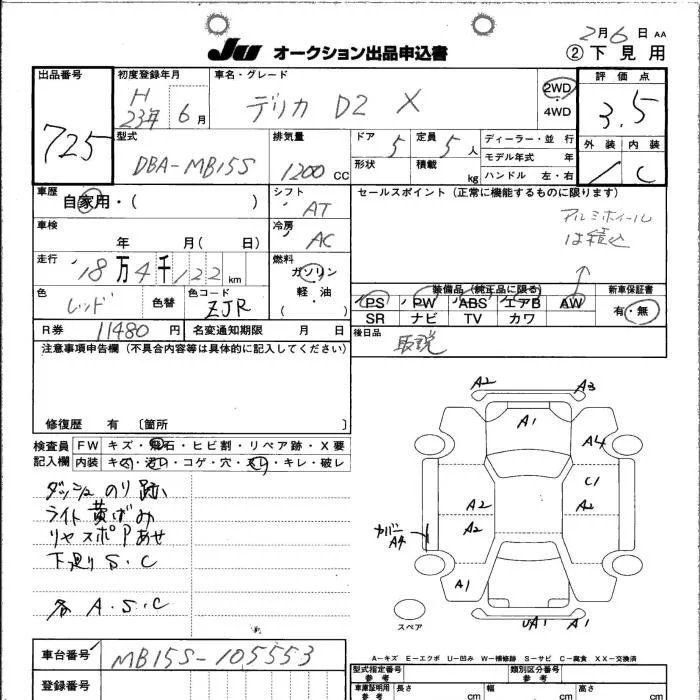 2月6日 AA
JU オークション出品申込書 ②下見用
出品番号 725
初度登録年月 H 23年 6月
車名・グレード デリカ D2 X
2WD・4WD
評価点 3.5
外装 内装 C
型式 DBA-MB15S
排気量 1200 CC
ドア 5
定員 5人
形状
積載 kg
ディーラー・並行
モデル年式 年
ハンドル 左・右
車歴 自家用・( )
シフト AT
車検 年 月( 日)
冷房 AC
走行 18万4千122 km
燃料 ガソリン 軽・油 ( )
色 レッド 色替
色コード ZJR
R券 11480円
名変通知期限 月 日
セールスポイント (正常に機能するものに限ります)
アルミホイール
は積込
装備品 (純正品に限る)
PS PW ABS エアB AW
SR ナビ TV カワ
新車保証書 有・無
後日品 取説
注意事項申告欄 (不具合内容等は具体的に記入してください)
修復歴 有 〔箇所 〕
検査員記入欄
FW キズ・飛石・ヒビ割・リペア跡・X要
内装 キズ・汚レ・コゲ・穴・スレ・キレ・破レ
ダッシュのり跡
ライト黄ばみ
リヤスポアあせ
下廻りS.C
各 A.S.C
A2 A3
A1
A4
C1
A2 A2
A2
カバー A4
A1
UA1 A1
スペア
A-キズ E-エクボ U-凹み W-補修跡 S-サビ C-腐食 XX-交換済
車台番号 MB15S-105553
登録番号
型式指定番号 参考
類別区分番号 参考
車庫証明用 参考 長さ cm 幅 cm 高さ cm